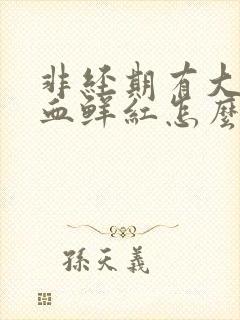 非經期有大
血鮮紅怎麼
孫天義